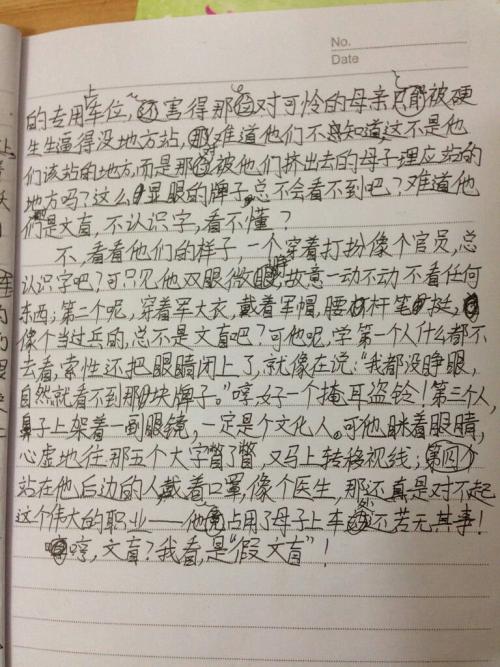 No.
Date
的专用车位,还害得那位对可怜的母亲只能被硬
生生逼得没地方站,那难道他们不知道,这不是他
们该站的地方,而是那对被他们挤出去的母子理应站的
地方吗?这么显眼的牌子,总不会看不到吧?难道他
们是文盲,不认识字,看不懂?
不,看看他们的样子,一个穿着打扮像个官员,总
认识字吧?可只见他双眼微睁,故意一动不动不看任何
东西;第二个呢,穿着军大衣,戴着军帽,腰杆笔挺,
像个当过兵的,总不是文盲吧?可他呢,学第一个人什么都不
去看,索性还把眼睛闭上了,就像在说:“我都没睁眼,
自然就看不到那块牌子。”哼,好一个掩耳盗铃!第三个人,
鼻子上架着一副眼镜,一定是个文化人。可他眯着眼睛,
心虚地往那五个大字瞥了瞥,又马上转移视线;第四个
站在他后边的人戴着口罩,像个医生,那还真是对不起
这个伟大的职业——他占用了母子上车处还若无其事!
哼,文盲?我看,是“假文盲”!